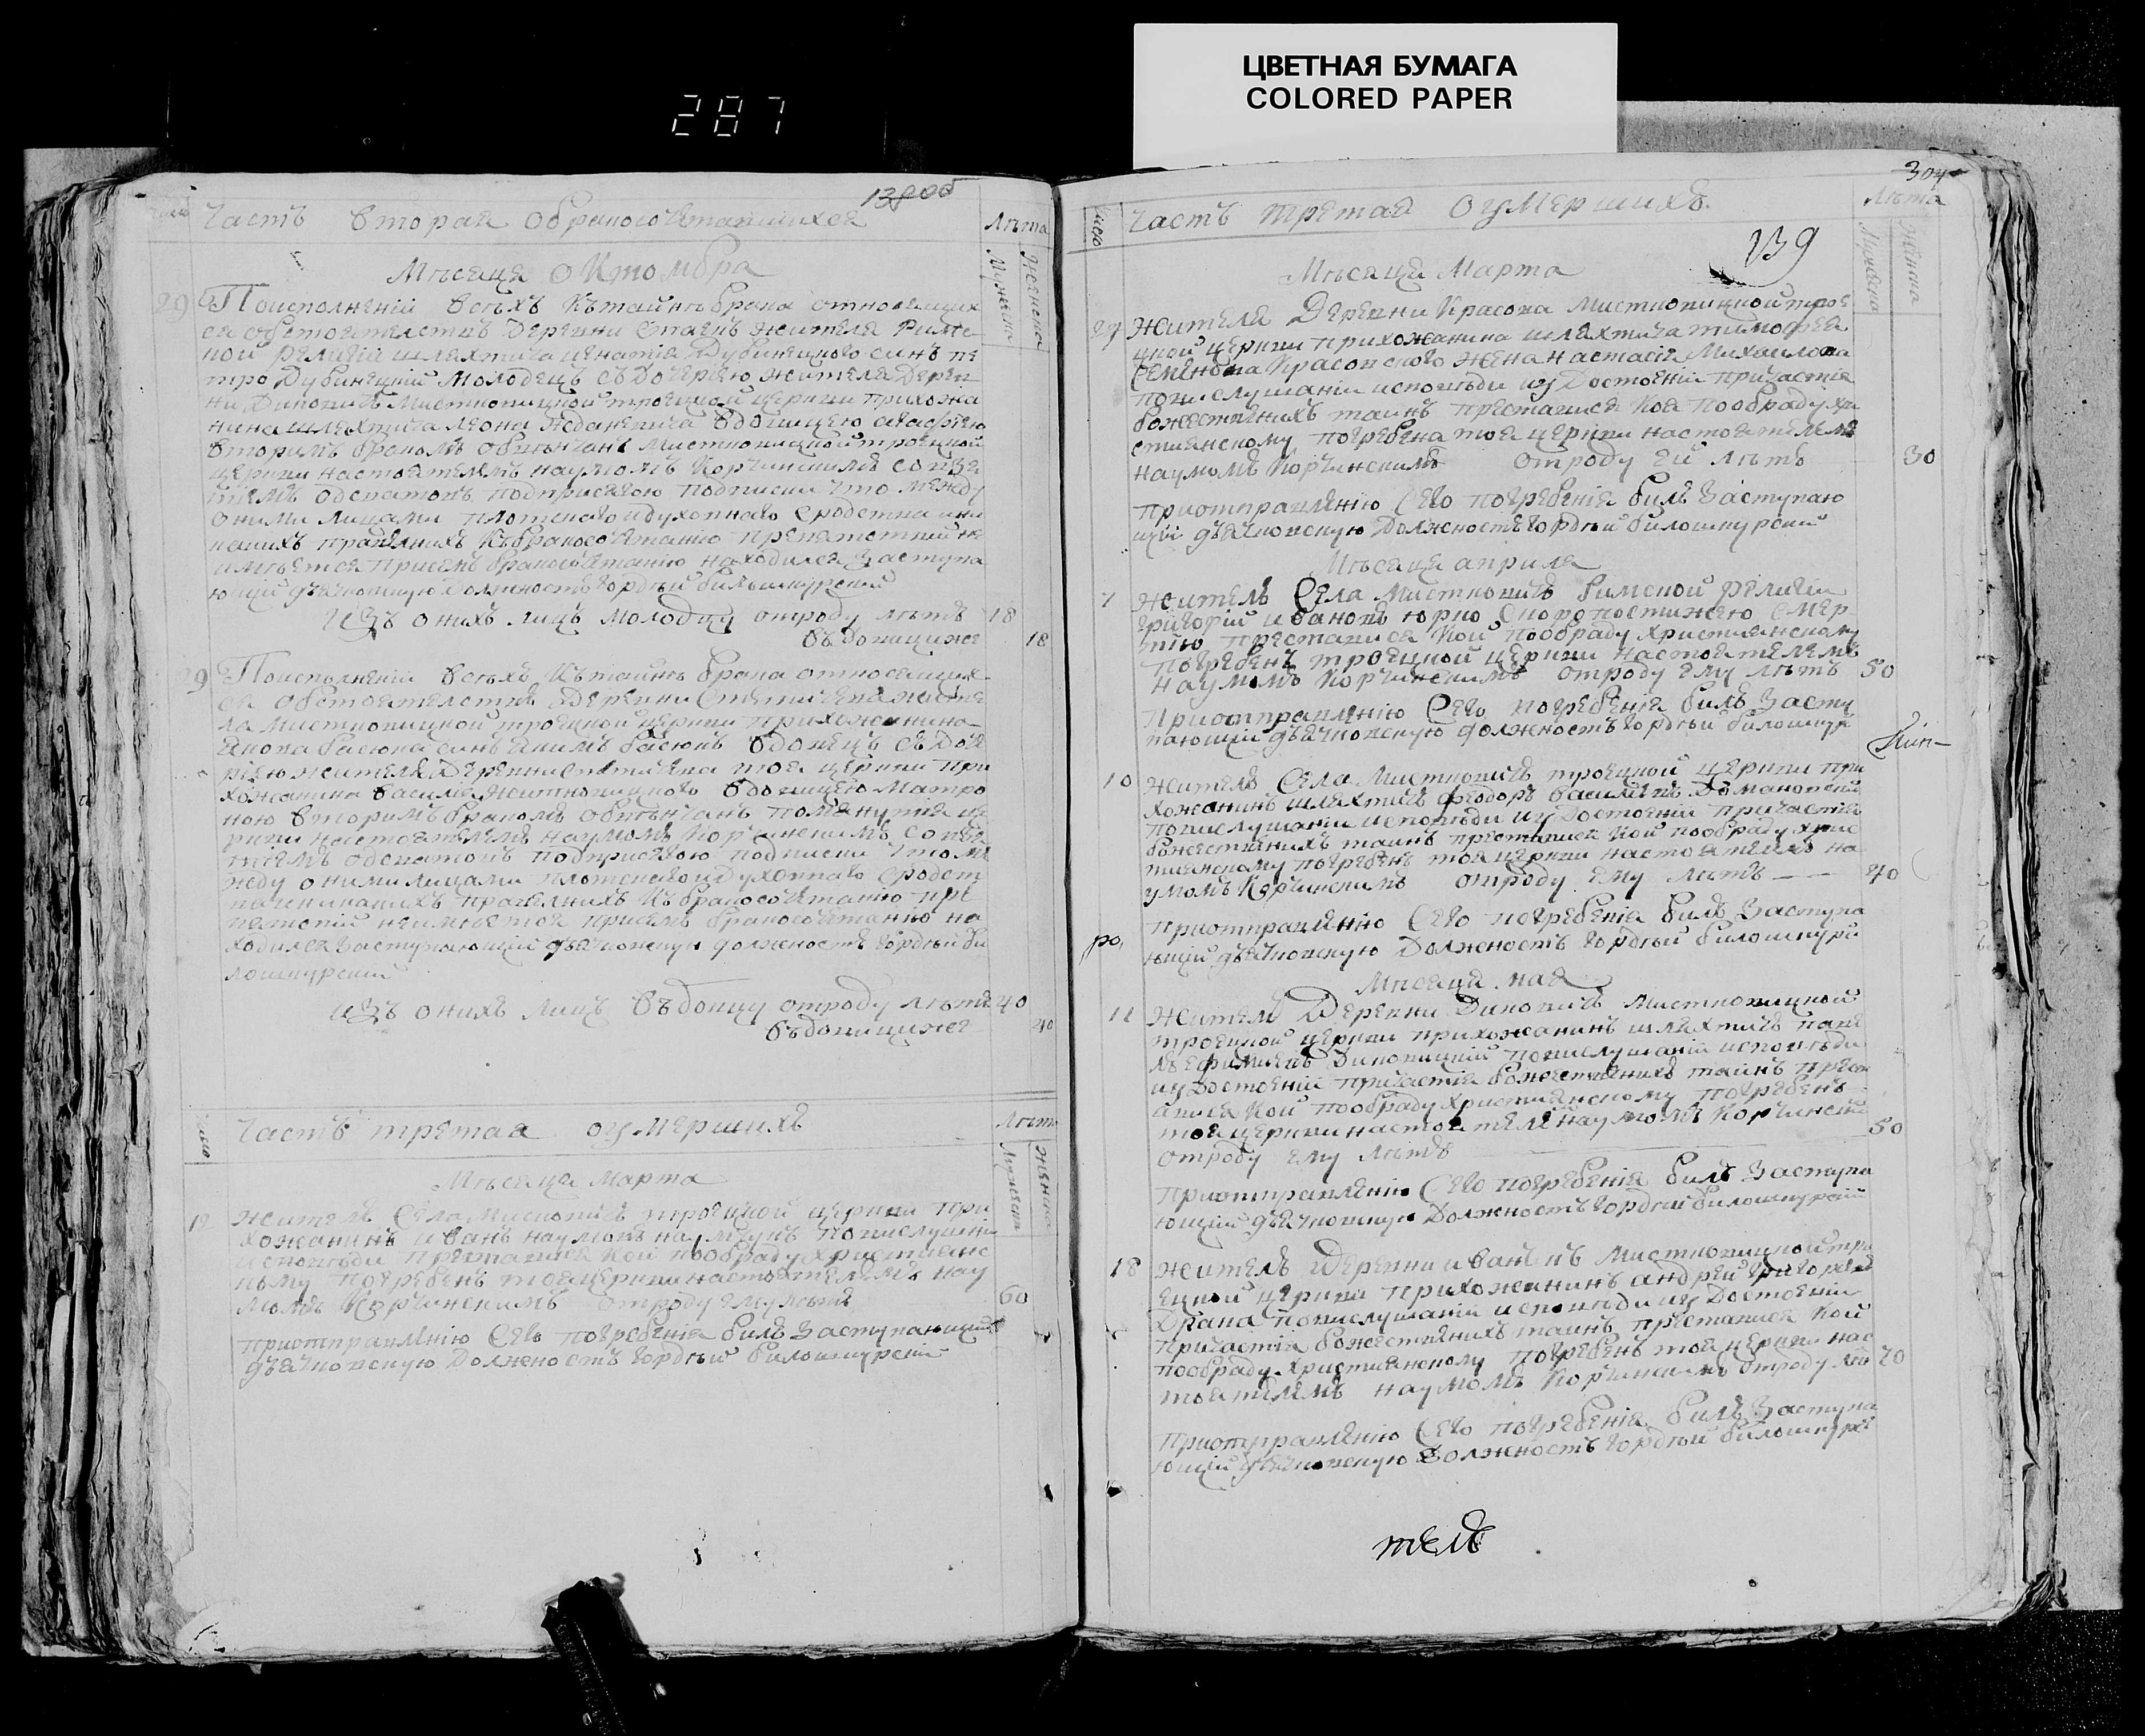 ЦВЕТНАЯ БУМАГА
COLORED PAPER
287
138об
Часть вторая о бракосочетавшихся
Лѣта
Мужеска
Женска
Мѣсяца октомбра
29 По исполненій всѣхъ къ тайнѣ брака относящих
ся обстоятелствъ деревни Ставъ жителя Римс
кой религіи шляхтича игнатія Дубинецкого синъ пе
тро Дубинецкій молодецъ съ дочерею жителя дерев
ни Диковичъ Мистковицкой троецкой церкви прихожа
нина шляхтича леона Жданевича вдовицею агафіею
вторимъ бракомъ обвѣнчанъ Мистковицкой троецкой
церкви настоятелемъ наумомъ Корчинскимъ со взя
тіемъ одсватовъ подприсягою подписки что между
оними лицами плотского и духовного сродства и ни
какихъ правилнихъ къ бракосочетанію препятствий не
имѣется присемъ бракосочетанію находился заступа
ющій дячковскую должность Гордѣй билошкурский
изъ онихъ лицъ молодцу отроду лѣтъ 18
вдовици же 18
29 По исполненій всѣхъ къ тайнѣ брака относящих
ся обстоятелствъ деревни жите
ля мистковицкой троецкой церкви прихожанина
синъ вдовецъ съ доче
рію жителя деревни тоя церкви при
хожанина василия вдовицею Матро
ною вторимъ бракомъ обвѣнчанъ помянутия це
ркви настоятелемъ наумомъ Корчинскимъ со взя
тіемъ одсватовъ подприсягою подписки что ме
жду оними лицами плотского и духовного сродст
ва и никакихъ правилнихъ къ бракосочетанію пре
пятствій неимѣется присемъ бракосочетанію на
ходился заступающий дячковскую должность Гордѣй би
лошкурский
изъ онихъ лицъ вдовцу отроду лѣтъ 40
вдовици же 40
Число
Часть третая о умершихъ
Лѣта
Мужеска
Женска
Мѣсяца марта
12 житель села Мистковичъ троецкой церкви при
хожанинъ иванъ наумовъ повислушаніи
исповѣди преставися кой по обряду християнс
кому погребенъ тоя церкви настоятелемъ нау
момъ Корчинскимъ отроду ему лѣтъ 60
приотправлению сего погребенія билъ заступающий
дячковскую должность Гордѣй билошкурский
304
Число
Часть третая о умершихъ
Лѣта
139
Мужеска
Женска
Мѣсяца Марта
27 жителя деревни Красова Мистковицкой трое
цкой церкви прихожанина шляхтича тимофея
Семенова Красовского жена настасія Михайлова
повислушаніи исповѣди и удостоеніи причастія
божественихъ таинъ преставися коя по обряду хри
стиянскому погребена тоя церкви настоятелемъ
наумомъ Корчинскимъ отроду ей лѣтъ 30
приотправлению сего погребенія билъ заступаю
щій дячковскую должность Гордѣй билошкурский
Мѣсяца априля
7 житель села Мистковичъ римской религии
григорій ивановъ юрко скоропостижною смер
тію преставися кой по обряду християнскому
погребенъ троецкой церкви настоятелемъ
наумомъ Корчинскимъ отроду ему лѣтъ 50
приотправлению сего погребенія билъ засту
пающий дячковскую должность Гордѣй билошкур
10 житель села Мистковичъ троецкой церкви при
хожанинъ шляхтичъ феодоръ василіевъ Домановский
повислушаніи исповѣди и удостоеніи причастия
божественихъ таинъ преставися кой по обряду хрис
тиянскому погребенъ тоя церкви настоятелемъ на
умомъ Корчинскимъ отроду ему лѣтъ 40
приотправлению сего погребенія билъ заступа
ющій дячковскую должность Гордѣй билошкурс
ро,
Мѣсяца мая
11 житель деревни Диковичъ мистковицкой
троецкой церкви прихожанинъ шляхтичъ паве
лъ ефимиевъ Диковицкій повислушаніи исповѣди
и удостоеній причастія божественихъ таинъ прест
авися кой по обряду християнскому погребенъ
тоя церкви настоятелемъ наумомъ Корчински
отроду ему лѣтъ 50
приотправлению сего погребенія билъ заступа
ющій дячковскую должность Гордѣй билошкурский
18 житель деревни иванинъ мистковицкой тро
ецкой церкви прихожанинъ андрей григориевъ
Драка повислушаній исповѣди и удостоеніи
причастія божественихъ таинъ преставися кой
по обряду християнскому погребенъ тоя церкви нас
тоятелемъ наумомъ Корчинскимъ отроду лѣт 70
приотправлению сего погребенія билъ заступа
ющій дячковскую должность Гордѣй билошкурс
тель